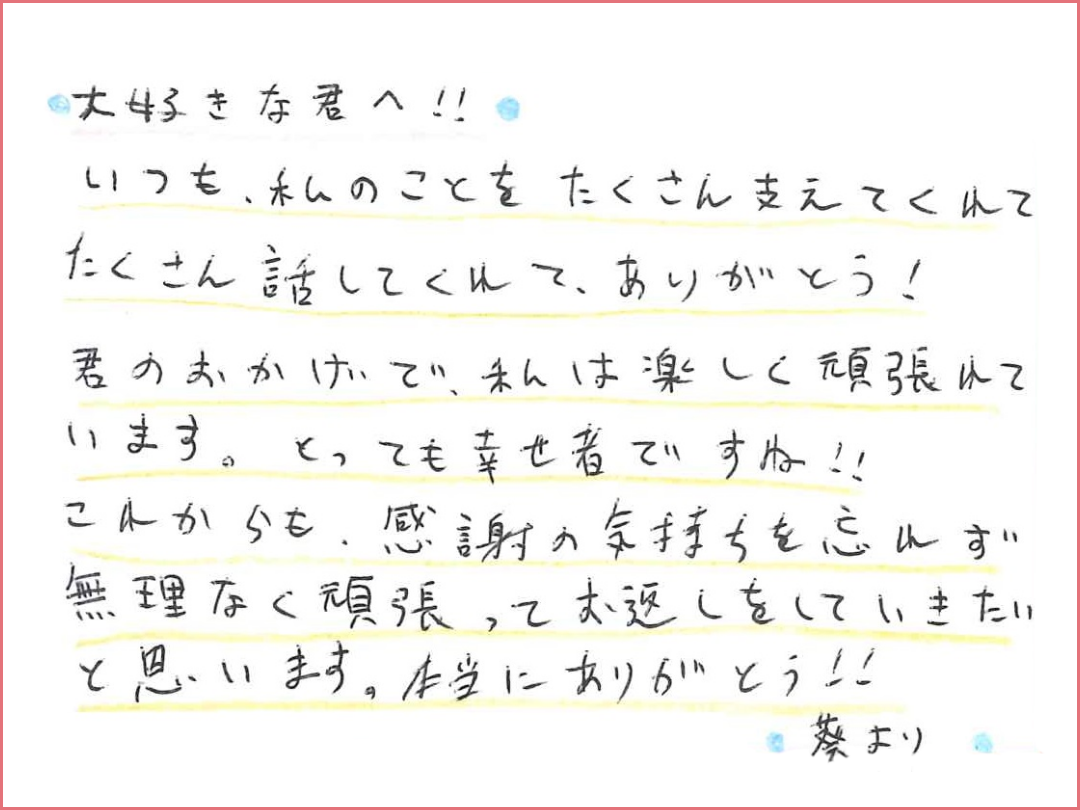 大好きな君へ!!
いつも、私のことをたくさん支えてくれて
たくさん話してくれて、ありがとう!
君のおかげで、私は楽しく頑張れて
います。とっても幸せ者ですね!!
これからも、感謝の気持ちを忘れず
無理なく頑張ってお返しをしていきたい
と思います。本当にありがとう!!
葵より